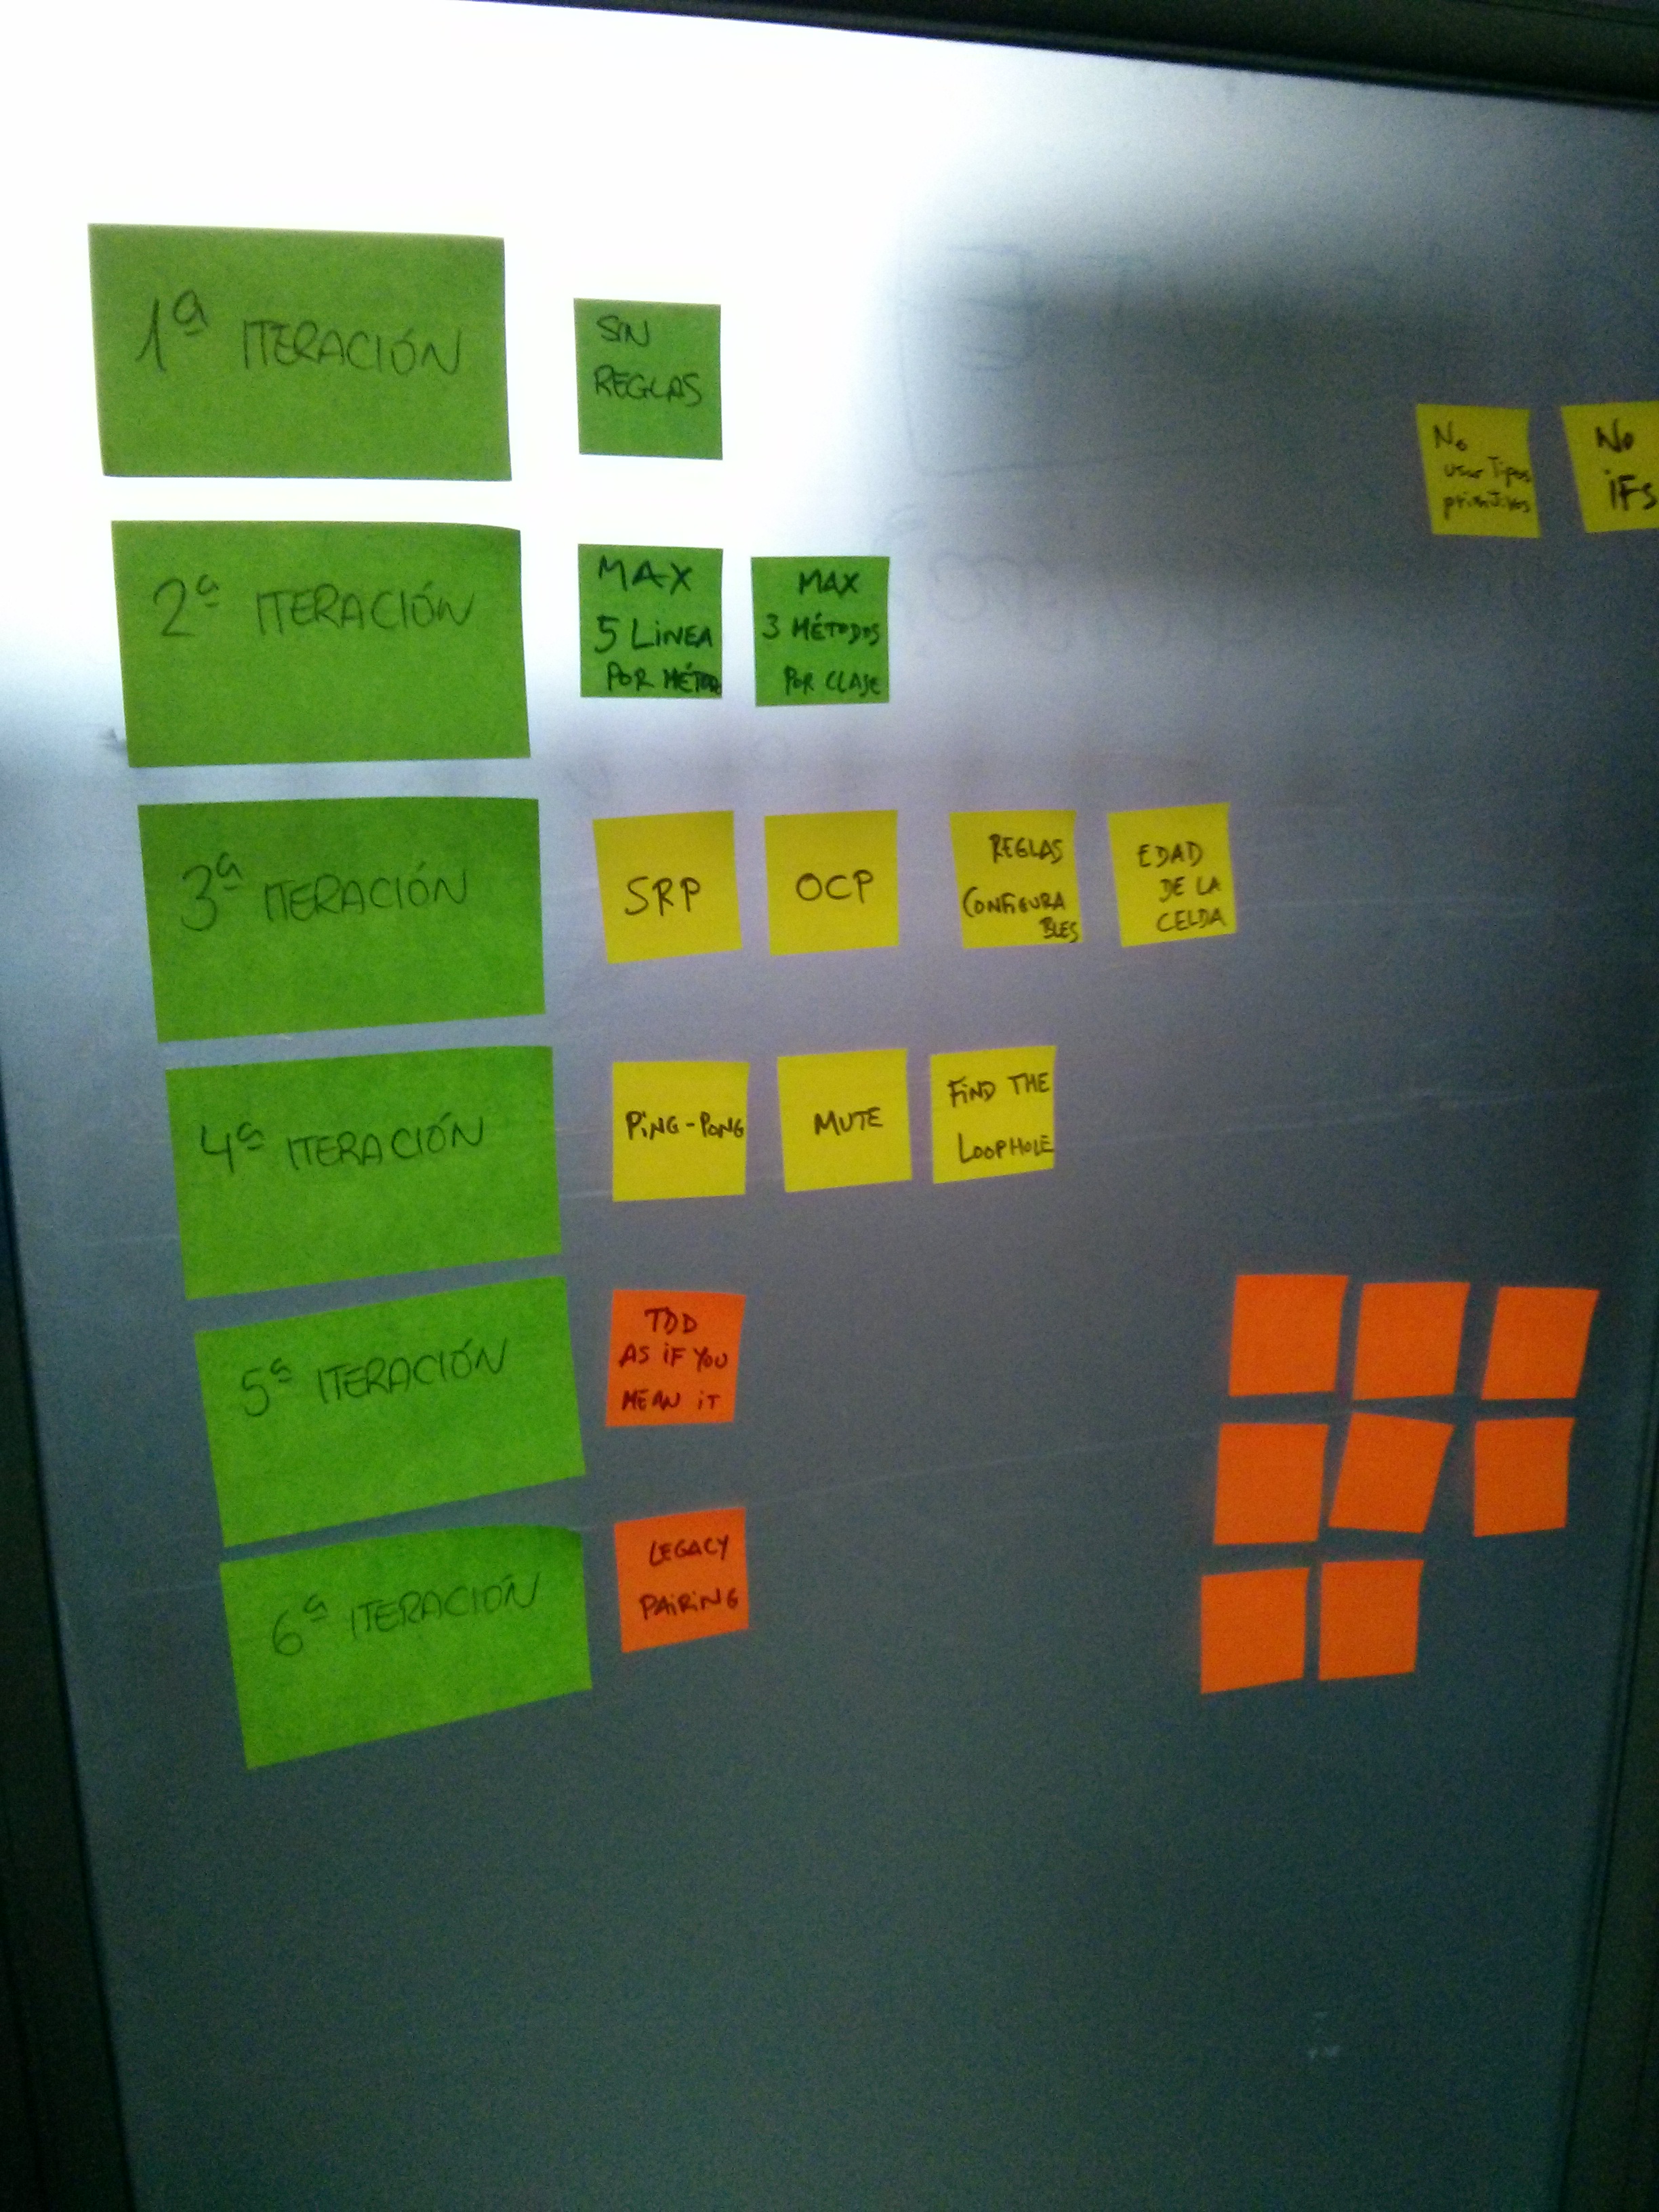 1ª ITERACIÓN
SIN
REGLAS
No
usar Tipos
primitivos
No
iFs
2ª ITERACIÓN
MAX
5 LiNEA
POR MÉTODO
MAX
3 MÉTODOS
POR CLASE
3ª ITERACIÓN
SRP
OCP
REGLAS
CONFiGURA
BLES
EDAD
DE LA
CELDA
4ª ITERACIÓN
PiNG-PONG
MUTE
FiND THE
LOOPHOLE
5ª ITERACIÓN
TDD
AS iF YOU
MEAN iT
6ª ITERACIÓN
LEGACY
PAiRiNG